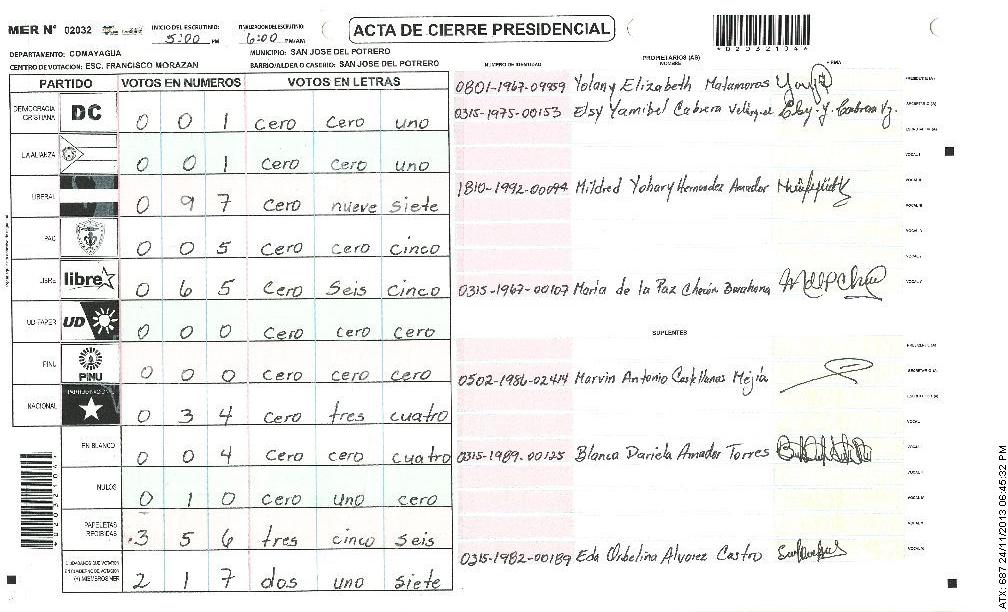 MER Nº 02032
INICIO DEL ESCRUTINIO 5:00 PM
FINALIZACION DEL ESCRUTINIO 6:00 PM/AM
ACTA DE CIERRE PRESIDENCIAL
DEPARTAMENTO: COMAYAGUA
MUNICIPIO: SAN JOSE DEL POTRERO
CENTRO DE VOTACION: ESC. FRANCISCO MORAZAN
BARRIO/ALDEA O CASERIO: SAN JOSE DEL POTRERO
PARTIDO VOTOS EN NUMEROS VOTOS EN LETRAS
DEMOCRACIA CRISTIANA DC 0 0 1 cero cero uno
LA ALIANZA 0 0 1 cero cero uno
LIBERAL 0 9 7 cero nueve siete
PAC 0 0 5 cero cero cinco
LIBRE libre 0 6 5 cero seis cinco
UD-FAPER UD 0 0 0 cero cero cero
PINU PINU 0 0 0 cero cero cero
NACIONAL PARTIDO NACIONAL 0 3 4 cero tres cuatro
EN BLANCO 0 0 4 cero cero cuatro
NULOS 0 1 0 cero uno cero
PAPELETAS RECIBIDAS 3 5 6 tres cinco seis
CIUDADANOS QUE VOTARON EN CUADERNO DE VOTACION (Y) MIEMBROS MER 2 1 7 dos uno siete
NUMERO DE IDENTIDAD PROPIETARIOS (AS) NOMBRE FIRMA
0801-1967-09959 Yolany Elizabeth Matamoros PRESIDENTE (A)
0315-1975-00153 Elsy Yamibel Cabrera Velásquez SECRETARIO (A)
ESCRUTADOR (A)
VOCAL I
1810-1992-00094 Mildred Yohary Hernandez Amador VOCAL II
VOCAL III
VOCAL IV
VOCAL V
0315-1967-00107 Maria de la Paz Barahona
SUPLENTES
PRESIDENTE (A)
0502-1986-02414 Marvin Antonio Castellanos Mejía SECRETARIO (A)
ESCRUTADOR (A)
VOCAL I
0315-1989-00125 Blanca Dariela Amador Torres
0315-1982-00189 Eda Orbelina Alvarez Castro
ATX: 687 24/11/2013 06:45:32 PM